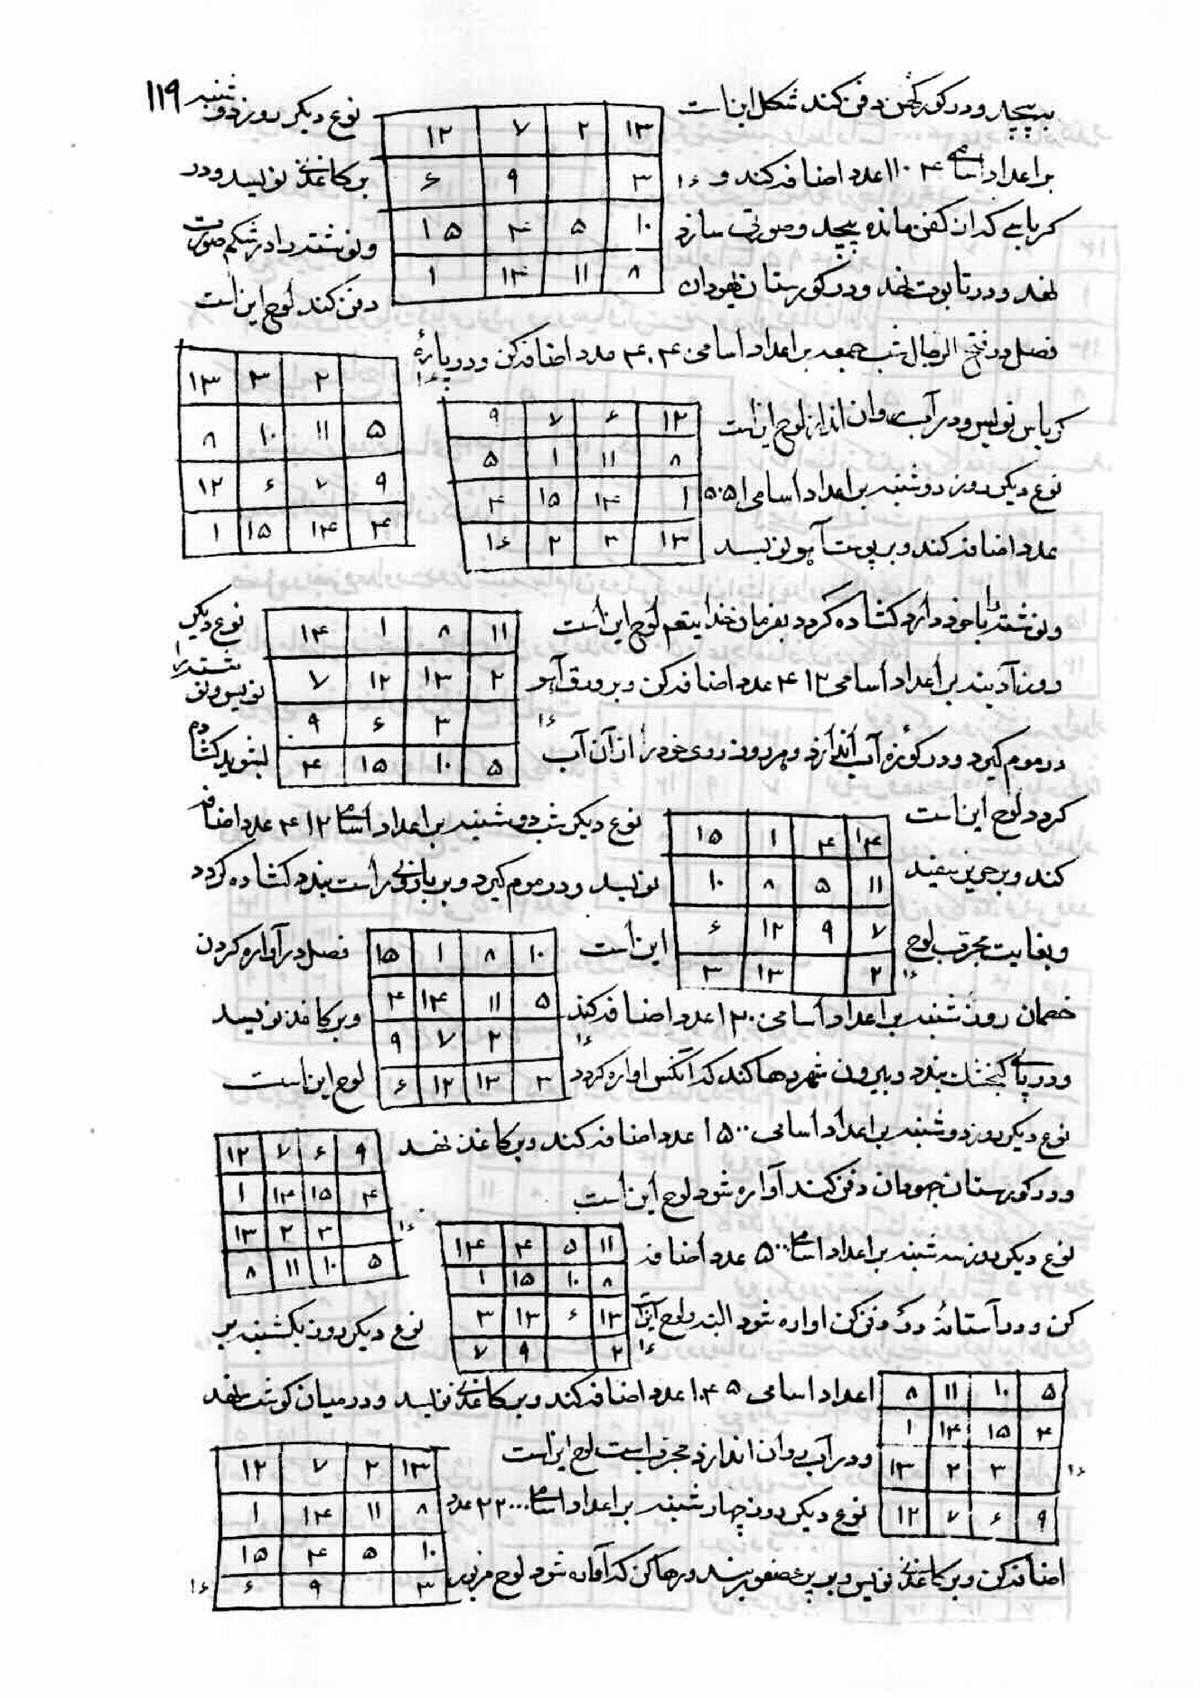 ۱۱۹
بپیچد و در کور کهن دفن کند شکل این است نوع دیگر روز دوشنبه
۱۳ ۲ ۷ ۱۲
۳ ۹ ۶
۱۰ ۵ ۴ ۱۵
۸ ۱۱ ۱۴ ۱
۱۶
بر اعداد اسامی ۱۱۰۴ عدد اضافه کند و بر کاغذی نویسد و در
کرباسی که از کفن مانده پیچد و صورتی سازد و نوشته را در شکم صورت
نهد و در تابوت نهد و در کورستان یهودان دفن کند لوح این است
فصل در فتح الرجال شب جمعه بر اعداد اسامی ۴۰۴ عدد اضافه کن و در پارهٔ
۲ ۳ ۱۳
۵ ۱۱ ۱۰ ۸
۹ ۷ ۶ ۱۲
۴ ۱۴ ۱۵ ۱
۱۶
کرباس نویس و در آب روان انداز لوح این است
۱۲ ۶ ۷ ۹
۸ ۱۱ ۱ ۵
۱ ۱۴ ۱۵ ۴
۱۳ ۳ ۲ ۱۶
نوع دیگر روز دوشنبه بر اعداد اسامی ۵۰۵۱
عدد اضافه کند و بر پوست آهو نویسد
و نوشته را با خود دارد کشاده کردد بفرمان خدایتعم لوح این است نوع دیگر
۱۱ ۸ ۱ ۱۴
۲ ۱۳ ۱۲ ۷
۳ ۶ ۹
۵ ۱۰ ۱۵ ۴
۱۶
روز آدینه بر اعداد اسامی ۴۱۲ عدد اضافه کن و بر ورق آهو نویس و نوشته را
در موم کیرد و در کوزه آب اندازد و هر روز روی خود را از آن آب بشوید کشاده
کردد لوح این است نوع دیگر شب دوشنبه بر اعداد اسامی ۴۱۲ عدد اضافه
۱۴ ۴ ۱ ۱۵
۱۱ ۵ ۸ ۱۰
۷ ۹ ۱۲ ۶
۲ ۱۳ ۳
۱۶
کند و بر حریر سفید نویسد و در موم کیرد و بر بازوی راست بندد کشاده کردد
و بغایت مجرب لوح این است فصل در آواره کردن
۱۰ ۸ ۱ ۱۵
۵ ۱۱ ۱۴ ۴
۲ ۷ ۹
۳ ۱۳ ۱۲ ۶
۱۶
خصمان روز شنبه بر اعداد اسامی ۱۳۰ عدد اضافه کند و بر کاغذ نویسد
و در پای کنجشک بندد و بیرون شهر رها کند که آنکس اواره کردد لوح این است
نوع دیگر روز دوشنبه بر اعداد اسامی ۱۵۰۰ عدد اضافه کند و بر کاغذ نهد
۹ ۶ ۷ ۱۲
۴ ۱۵ ۱۴ ۱
۳ ۲ ۱۳
۵ ۱۰ ۱۱ ۸
۱۶
و در کورستان جهودان دفن کند آواره شود لوح این است
نوع دیگر روز سه شنبه بر اعداد اسامی ۵۰۰ عدد اضافه
۱۱ ۵ ۴ ۱۴
۸ ۱۰ ۱۵ ۱
۱۲ ۶ ۱۳ ۳
۲ ۹ ۷
۱۶
کن و در آستانهٔ در دفن کن اواره شود البته ولوح این است نوع دیگر روز یکشنبه بر
۵ ۱۰ ۱۱ ۸
۴ ۱۵ ۱۴ ۱
۳ ۲ ۱۳
۹ ۶ ۷ ۱۲
۱۶
اعداد اسامی ۱۰۴۵ عدد اضافه کند و بر کاغذی نویسد و در میان کوشت نهد
و در آب روان اندازد مجرب است لوح این است
۱۳ ۲ ۷ ۱۲
۸ ۱۱ ۱۴ ۱
۱۰ ۵ ۴ ۱۵
۳ ۹ ۶
۱۶
نوع دیگر روز چهارشنبه بر اعداد اسامی ۲۲۰۰۰ عدد
اضافه کن و بر کاغذی نویس و بر پر عصفور بند و رها کن که آواره شود لوح مزبور